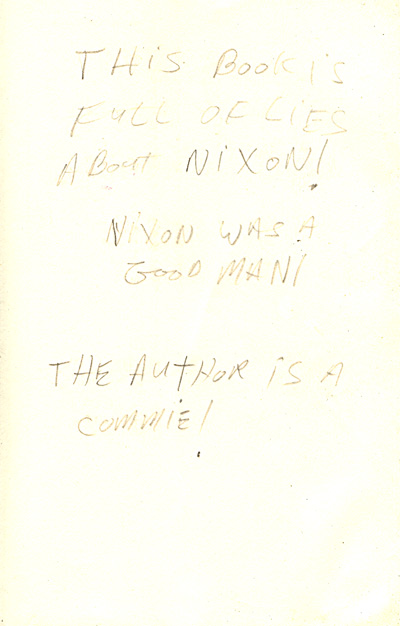 THiS BOOK iS
FULL OF LiES
ABOUT NiXON!
NiXON WAS A
GOOD MAN!
THE AUTHOR iS A
COMMiE!